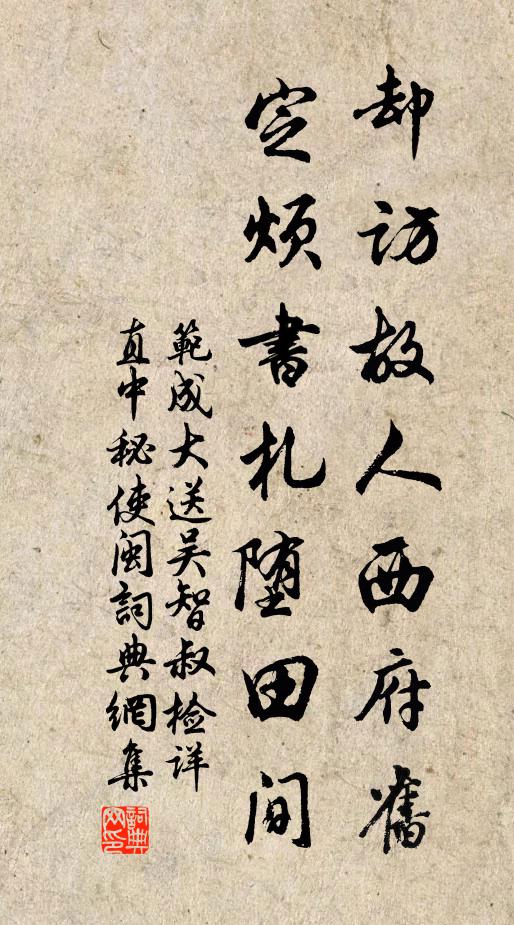 却访故人西府舊
定烦書札堕田间
範成大送吴智叔检详
直中秘使闽詞典網集
詞典网印